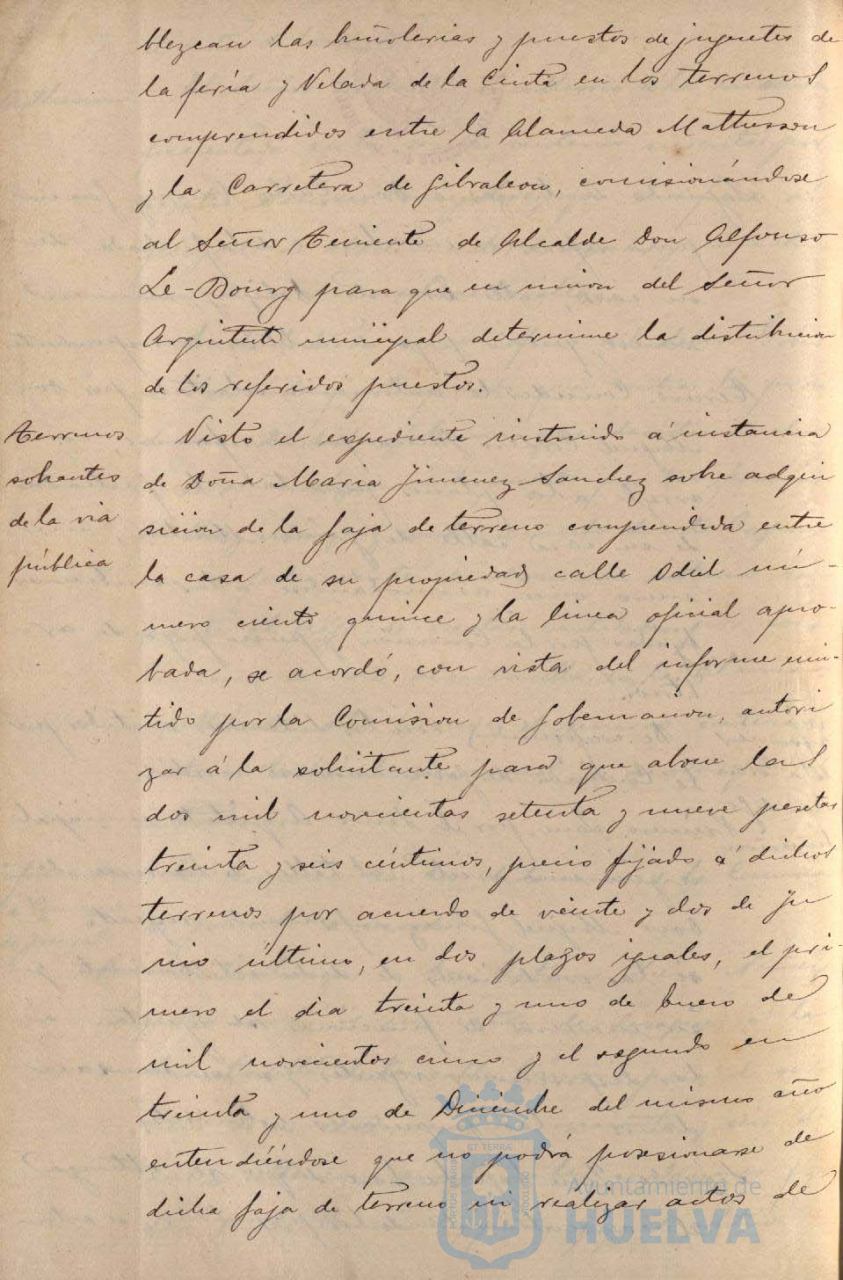 blezcan las buñolerias y puestos de juguetes de
la feria y Velada de la Cinta en los terrenos
comprendidos entre la Alameda Mattesson
y la Carretera de Gibraleon, comisionándose
al Señor Teniente de Alcalde Don Alfonso
Le-Bourg para que en union del Señor
Arquitecto municipal determine la distribucion
de los referidos puestos.
Terrenos
sobrantes
de la via
pública
Visto el expediente instruido á instancia
de Doña Maria Jimenez Sanchez sobre adqui
sicion de la faja de terreno comprendida entre
la casa de su propiedad calle Odiel nú-
mero ciento quince y la linea oficial apro-
bada, se acordó, con vista del informe emi-
tido por la Comision de Gobernacion, autori
zar á la solicitante para que abone las
dos mil novecientas setenta y nueve pesetas
treinta y seis céntimos, precio fijado á dichos
terrenos por acuerdo de veinte y dos de Ju
nio último, en dos plazos iguales, el pri-
mero el dia treinta y uno de Enero de
mil novecientos cinco y el segundo en
treinta y uno de Diciembre del mismo año
entendiéndose que no podrá posesionarse de
dicha faja de terreno ni realizar actos de
Ayuntamiento de
HUELVA